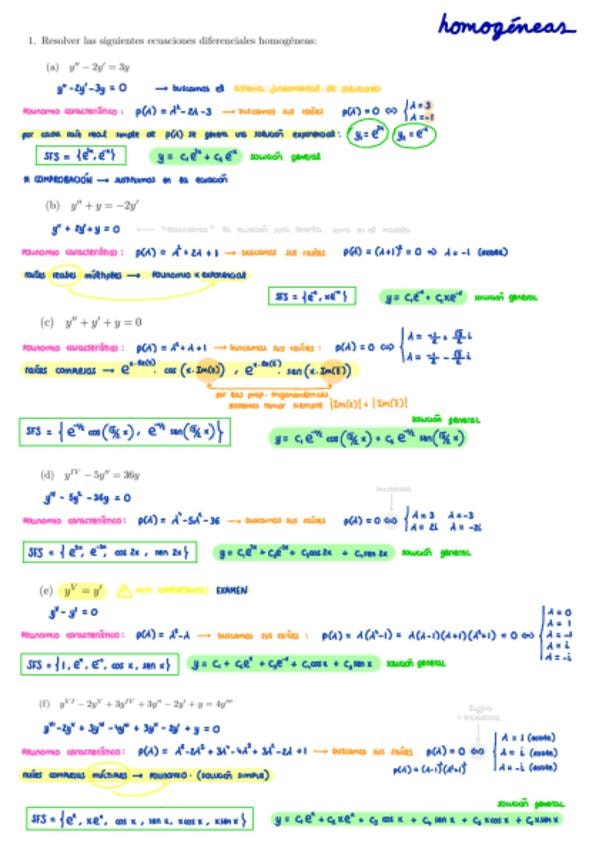 homogéneas
1. Resolver las siguientes ecuaciones diferenciales homogéneas:
(a) y'' − 2y' = 3y
y'' - 2y' - 3y = 0 → buscamos el sistema fundamental de soluciones
Polinomio característico: p(λ) = λ² - 2λ - 3 → buscamos sus raíces p(λ) = 0 ⇔ { λ = 3
λ = -1
por cada raíz real simple de p(λ) se genera una solución exponencial: y₁ = e³ˣ y₂ = e⁻ˣ
SFS = {e³ˣ, e⁻ˣ} y = c₁e³ˣ + c₂e⁻ˣ solución general
* COMPROBACIÓN → sustituimos en la ecuación
(b) y'' + y = −2y'
y'' + 2y' + y = 0 ← la ecuación para tenerla como en el modelo
Polinomio característico: p(λ) = λ² + 2λ + 1 → buscamos sus raíces p(λ) = (λ+1)² = 0 ⇒ λ = -1 (doble)
raíces reales múltiples → Polinomio x exponencial
SFS = {e⁻ˣ, xe⁻ˣ} y = c₁e⁻ˣ + c₂xe⁻ˣ solución general
(c) y'' + y' + y = 0
Polinomio característico: p(λ) = λ² + λ + 1 → buscamos sus raíces: p(λ) = 0 ⇔ { λ = -1/2 + √3/2 i
λ = -1/2 - √3/2 i
raíces complejas → e^(x·Re(z)) · cos (x·Im(z)), e^(x·Re(z)) · sen (x·Im(z))
por las prop. trigonométricas
podemos tomar siempre |Im(z)| = |Im(z̄)|
solución general
SFS = {e^(-x/2) cos(√3/2 x), e^(-x/2) sen(√3/2 x)} y = c₁ e^(-x/2) cos(√3/2 x) + c₂ e^(-x/2) sen(√3/2 x)
(d) y^IV − 5y'' = 36y
y^IV - 5y'' - 36y = 0
Polinomio característico: p(λ) = λ⁴ - 5λ² - 36 → buscamos sus raíces p(λ) = 0 ⇔ { λ = 3 λ = -3
λ = 2i λ = -2i
SFS = {e³ˣ, e⁻³ˣ, cos 2x, sen 2x} y = c₁e³ˣ + c₂e⁻³ˣ + c₃cos 2x + c₄sen 2x solución general
(e) y^V = y' ⚠ MUY IMPORTANTE! EXAMEN
y^V - y' = 0
Polinomio característico: p(λ) = λ⁵ - λ → buscamos sus raíces: p(λ) = λ(λ⁴-1) = λ(λ-1)(λ+1)(λ²+1) = 0 ⇔ { λ = 0
λ = 1
λ = -1
λ = i
λ = -i
SFS = {1, eˣ, e⁻ˣ, cos x, sen x} y = c₁ + c₂eˣ + c₃e⁻ˣ + c₄cos x + c₅ sen x solución general
(f) y^VI − 2y^V + 3y^IV + 3y'' − 2y' + y = 4y'''
y^VI - 2y^V + 3y^IV - 4y''' + 3y'' - 2y' + y = 0
Ruffini
Polinomio característico: p(λ) = λ⁶ - 2λ⁵ + 3λ⁴ - 4λ³ + 3λ² - 2λ + 1 → buscamos sus raíces p(λ) = 0 ⇔ { λ = 1 (doble)
λ = i (doble)
λ = -i (doble)
p(λ) = (λ-1)²(λ²+1)²
raíces complejas múltiples → Polinomio · (solución simple)
solución general
SFS = {eˣ, xeˣ, cos x, sen x, xcos x, xsen x} y = c₁eˣ + c₂xeˣ + c₃ cos x + c₄ sen x + c₅ xcos x + c₆ xsen x